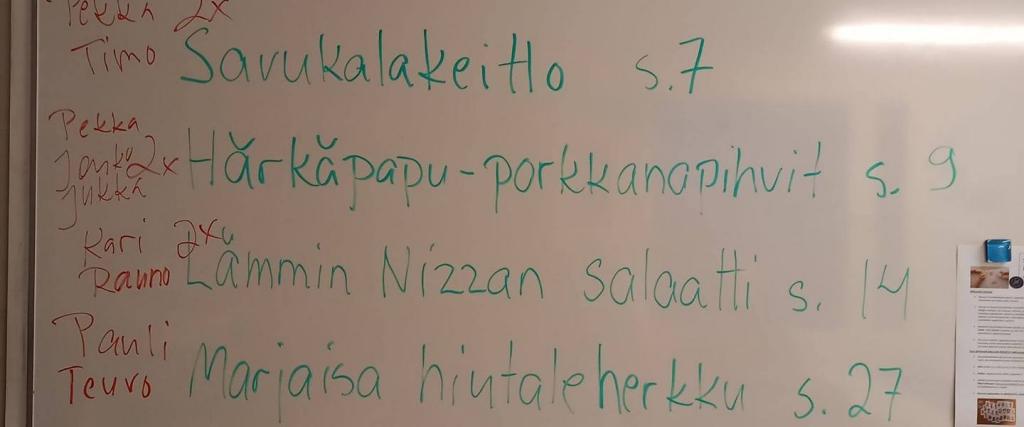 Pekka 2x
Timo Savukalakeitto s.7
Pekka
Jouku 2x Härkäpapu-porkkanapihvit s. 9
Jukka
Kari 2x
Rauno Lämmin Nizzan salaatti s. 14
Pauli
Teuvo Marjaisa hiutaleherkku s. 27